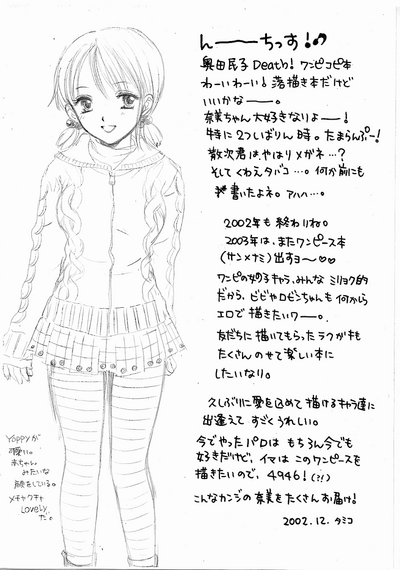 ん――ちっす!♪
奥田民子Death! ワンピコピ本
わーいわーい! 落描き本だけど
いいかな――。
奈美ちゃん大好きないよ――!
特に2ついばりん時。たまらんぷー!
散次君は、やはりメガネ…?
そしてくわえタバコ…。何か前にも
書いたよネ。アハハ…。
2002年も終わりね。
2003年は、またワンピース本
(サン×ナミ)出すヨ〜♡♡
ワンピの女の子キャラ、みんなミリョク的
だから、ビビやロビンちゃんも何かしら
エロで描きたいワ――。
友だちに描いてもらったラクガキも
たくさんのせて楽しい本に
したいなり。
久しぶりに愛を込めて描けるキャラ達に
出逢えてすごくうれしい。
今でやったパロはもちろん今でも
好きだけど、イマはこのワンピースを
描きたいので、4946!(?!)
こんなカンジの奈美をたくさんお届け!
2002.12.タミコ
Yoppyが
可愛い。
赤ちゃん
みたいな
顔をしている。
メチャクチャ
Lovely
だ。